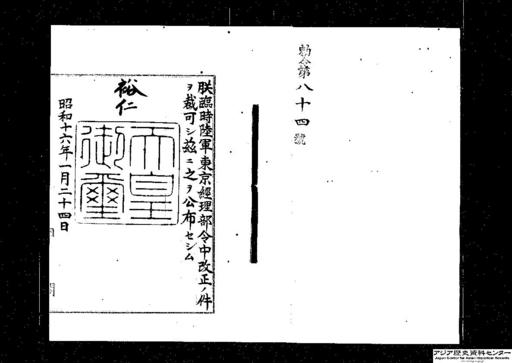 勅令第八十四號
朕臨時陸軍東京經理部令中改正ノ件
ヲ裁可シ茲ニ之ヲ公布セシム
裕仁
天皇御璽
昭和十六年一月二十四日
アジア歴史資料センター
Japan Center for Asian Historical Records